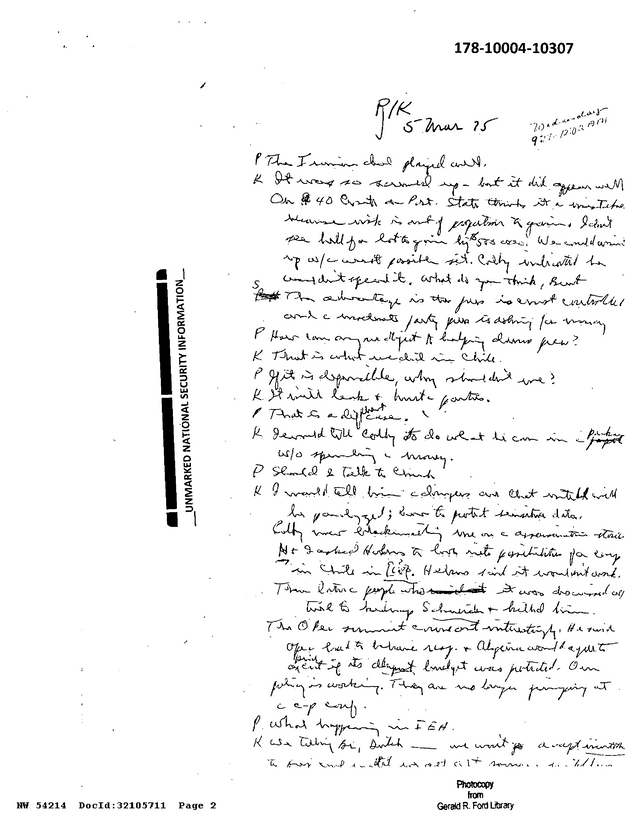 178-10004-10307
P/K
5 Mar 75
Wednesday
P The Iranian deal played well.
K It was so screwed up - but it did appear well
On 40 Comm on Port. State thinks it a mistake
because risk is out of proportion to gain. I don't
see
We could wind
up w/ worst possible sit. Colby indicated he
wouldn't spend it. What do you think, Brent
S The advantage is the press is almost controlled
and a moderate party press is asking for money
P How can anyone object to helping dems press?
K That is what we did in Chile.
P If it is defensible, why shouldn't we?
K It will leak & hurt parties.
P That is a different case.
K I would tell Colby to do what he can in a
w/o spending money.
P Should I talk to Church
K I would tell him dangers are that intell will
be paralyzed; how to protect sensitive data.
Colby now blackmailing me on assassination stories
Nr I asked Helms to look into possibilities for coup
in Chile in Helms said it wouldn't work.
Then later people who it was discussed w/
tried to kidnap Schneider & killed him.
The OPEC summit came out interestingly. He said
OPEC had to behave resp. & Algeria would agree to
price cut if its budget was protected. Our
policy is working. They are no longer jumping at
c-p conf.
P What happening in IEA.
K We telling Br, Dutch — we won't go accept
UNMARKED NATIONAL SECURITY INFORMATION
Photocopy
from
Gerald R. Ford Library
NW 54214 DocId:32105711 Page 2